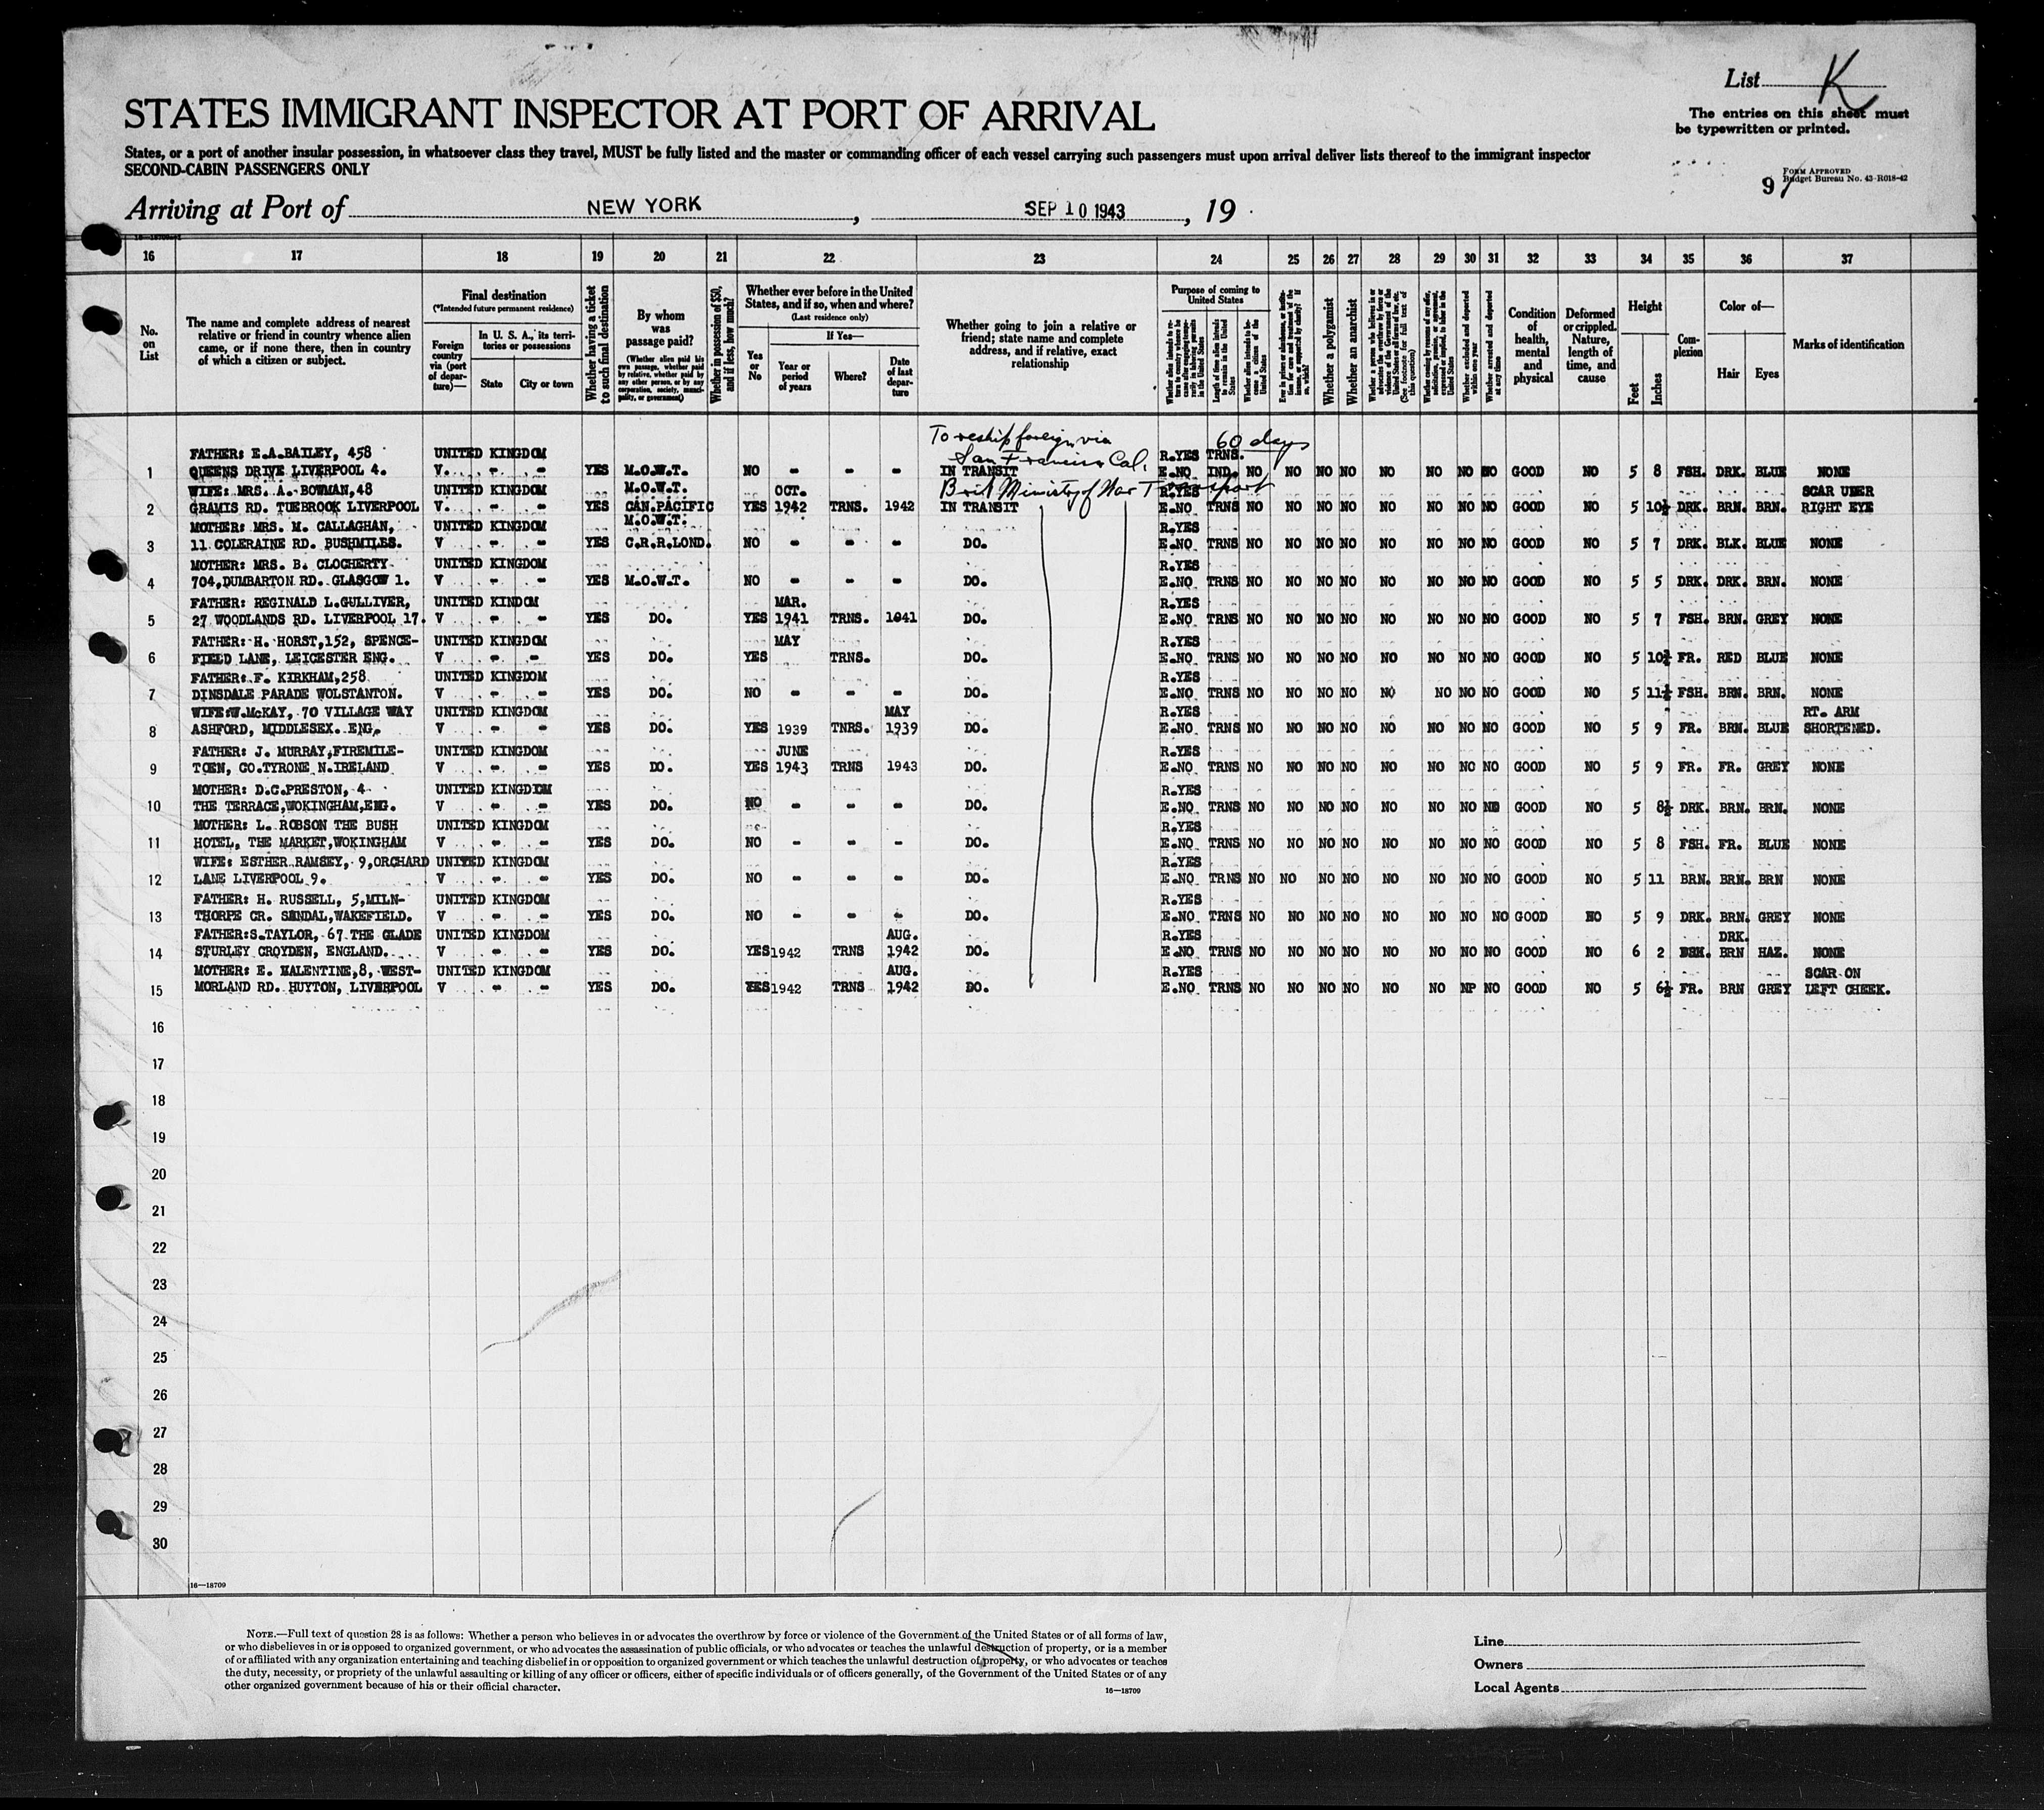 List K
STATES IMMIGRANT INSPECTOR AT PORT OF ARRIVAL
The entries on this sheet must
be typewritten or printed.
States, or a port of another insular possession, in whatsoever class they travel, MUST be fully listed and the master or commanding officer of each vessel carrying such passengers must upon arrival deliver lists thereof to the immigrant inspector
SECOND-CABIN PASSENGERS ONLY
FORM APPROVED
Budget Bureau No. 43-R018-42
9
Arriving at Port of NEW YORK, SEP 10 1943, 19
16 17 18 19 20 21 22 23 24 25 26 27 28 29 30 31 32 33 34 35 36 37
No. on List
The name and complete address of nearest relative or friend in country whence alien came, or if none there, then in country of which a citizen or subject.
Final destination
(*Intended future permanent residence)
Foreign country via (port of departure)—
In U. S. A., its territories or possessions
State
City or town
Whether having a ticket to such final destination
By whom was passage paid?
(Whether alien paid his own passage, whether paid by relative, whether paid by any other person, or by any corporation, society, municipality, or government)
Whether in possession of $50, and if less, how much?
Whether ever before in the United States, and if so, when and where?
(Last residence only)
Yes or No
If Yes—
Year or period of years
Where?
Date of last departure
Whether going to join a relative or friend; state name and complete address, and if relative, exact relationship
Purpose of coming to United States
Length of time alien intends to remain in the United States
Whether alien intends to become a citizen of the United States
Whether a polygamist
Whether an anarchist
Whether excluded and deported within one year
Whether arrested and deported at any time
Condition of health, mental and physical
Deformed or crippled. Nature, length of time, and cause
Height
Feet
Inches
Complexion
Color of—
Hair
Eyes
Marks of identification
To reship foreign via 60 days
San Francisco Cal.
FATHER: E.A.BAILEY, 458 UNITED KINGDOM R.YES TRNS.
1 QUEENS DRIVE LIVERPOOL 4. V. - - YES M.O.W.T. NO - - - IN TRANSIT E.NO IND. NO NO NO NO NO NO NO NO GOOD NO 5 8 FSH. DRK. BLUE NONE
Brit Ministry of War Transport
WIFE: MRS. A. BOWMAN,48 UNITED KINGDOM M.O.W.T. OCT. R.YES SCAR UBER
2 GRAMIS RD. TUEBROOK LIVERPOOL V. - - YES CAN.PACIFIC YES 1942 TRNS. 1942 IN TRANSIT E.NO TRNS NO NO NO NO NO NO NO NO GOOD NO 5 10½ DRK. BRN. BRN. RIGHT EYE
MOTHER: MRS. M. CALLAGHAN, UNITED KINGDOM M.O.W.T. R.YES
3 11 COLERAINE RD. BUSHMILES. V - - YES C.R.R.LOND. NO - - - DO. E.NO TRNS NO NO NO NO NO NO NO NO GOOD NO 5 7 DRK. BLK. BLUE NONE
MOTHER: MRS. B. CLOCHERTY UNITED KINGDOM R.YES
4 704,DUMBARTON RD. GLASGOW 1. V - - YES M.O.W.T. NO - - - DO. E.NO TRNS NO NO NO NO NO NO NO NO GOOD NO 5 5 DRK. DRK. BRN. NONE
FATHER: REGINALD L.GULLIVER, UNITED KINDOM MAR. R.YES
5 27 WOODLANDS RD. LIVERPOOL 17. V - - YES DO. YES 1941 TRNS. 1941 DO. E.NO TRNS NO NO NO NO NO NO NO NO GOOD NO 5 7 FSH. BRN. GREY NONE
FATHER: H. HORST,152, SPENCE- UNITED KINGDOM MAY R.YES
6 FIELD LANE, LEICESTER ENG. V - - YES DO. YES TRNS. DO. E.NO TRNS NO NO NO NO NO NO NO NO GOOD NO 5 10½ FR. RED BLUE NONE
FATHER: F. KIRKHAM,258 UNITED KINGDOM R.YES
7 DINSDALE PARADE WOLSTANTON. V - - YES DO. NO - - - DO. E.NO TRNS NO NO NO NO NO NO NO NO GOOD NO 5 11½ FSH. BRN. BRN. NONE
WIFE:W.McKAY, 70 VILLAGE WAY UNITED KINGDOM MAY R.YES RT. ARM
8 ASHFORD, MIDDLESEX. ENG. V - - YES DO. YES 1939 TNRS. 1939 DO. E.NO TRNS NO NO NO NO NO NO NO NO GOOD NO 5 9 FR. BRN. BLUE SHORTENED.
FATHER: J. MURRAY,FIREMILE- UNITED KINGDOM JUNE R.YES
9 TOEN, CO.TYRONE N.IRELAND V - - YES DO. YES 1943 TRNS 1943 DO. E.NO TRNS NO NO NO NO NO NO NO NO GOOD NO 5 9 FR. FR. GREY NONE
MOTHER: D.C.PRESTON, 4 UNITED KINGDOM R.YES
10 THE TERRACE,WOKINGHAM,ENG. V - - YES DO. NO - - - DO. E.NO TRNS NO NO NO NO NO NO NO NO GOOD NO 5 8½ DRK. BRN. BRN. NONE
MOTHER: L. ROBSON THE BUSH UNITED KINGDOM R.YES
11 HOTEL, THE MARKET,WOKINGHAM V - - YES DO. NO - - - DO. E.NO TRNS NO NO NO NO NO NO NO NO GOOD NO 5 8 FSH. FR. BLUE NONE
WIFE: ESTHER RAMSEY, 9,ORCHARD UNITED KINGDOM R.YES
12 LANE LIVERPOOL 9. V - - YES DO. NO - - - DO. E.NO TRNS NO NO NO NO NO NO NO NO GOOD NO 5 11 BRN. BRN. BRN NONE
FATHER: H. RUSSELL, 5,MILN- UNITED KINGDOM R.YES
13 THORPE CR. SANDAL,WAKEFIELD. V - - YES DO. NO - - - DO. E.NO TRNS NO NO NO NO NO NO NO NO GOOD NO 5 9 DRK. BRN. GREY NONE
FATHER:S.TAYLOR, 67 THE GLADE UNITED KINGDOM AUG. R.YES DRK.
14 STURLEY CROYDEN, ENGLAND. V - - YES DO. YES 1942 TRNS 1942 DO. E.NO TRNS NO NO NO NO NO NO NO NO GOOD NO 6 2 BRN HAZ. NONE
MOTHER: E. HALENTINE,8, WEST- UNITED KINGDOM AUG. R.YES SCAR ON
15 MORLAND RD. HUYTON, LIVERPOOL V - - YES DO. YES 1942 TRNS 1942 DO. E.NO TRNS NO NO NO NO NO NO NP NO GOOD NO 5 6½ FR. BRN GREY LEFT CHEEK.
16
17
18
19
20
21
22
23
24
25
26
27
28
29
30
16—18709
NOTE.—Full text of question 28 is as follows: Whether a person who believes in or advocates the overthrow by force or violence of the Government of the United States or of all forms of law,
or who disbelieves in or is opposed to organized government, or who advocates the assassination of public officials, or who advocates or teaches the unlawful destruction of property, or is a member
of or affiliated with any organization entertaining and teaching disbelief in or opposition to organized government or which teaches the unlawful destruction of property, or who advocates or teaches
the duty, necessity, or propriety of the unlawful assaulting or killing of any officer or officers, either of specific individuals or of officers generally, of the Government of the United States or of any
other organized government because of his or their official character.
16—18709
Line
Owners
Local Agents